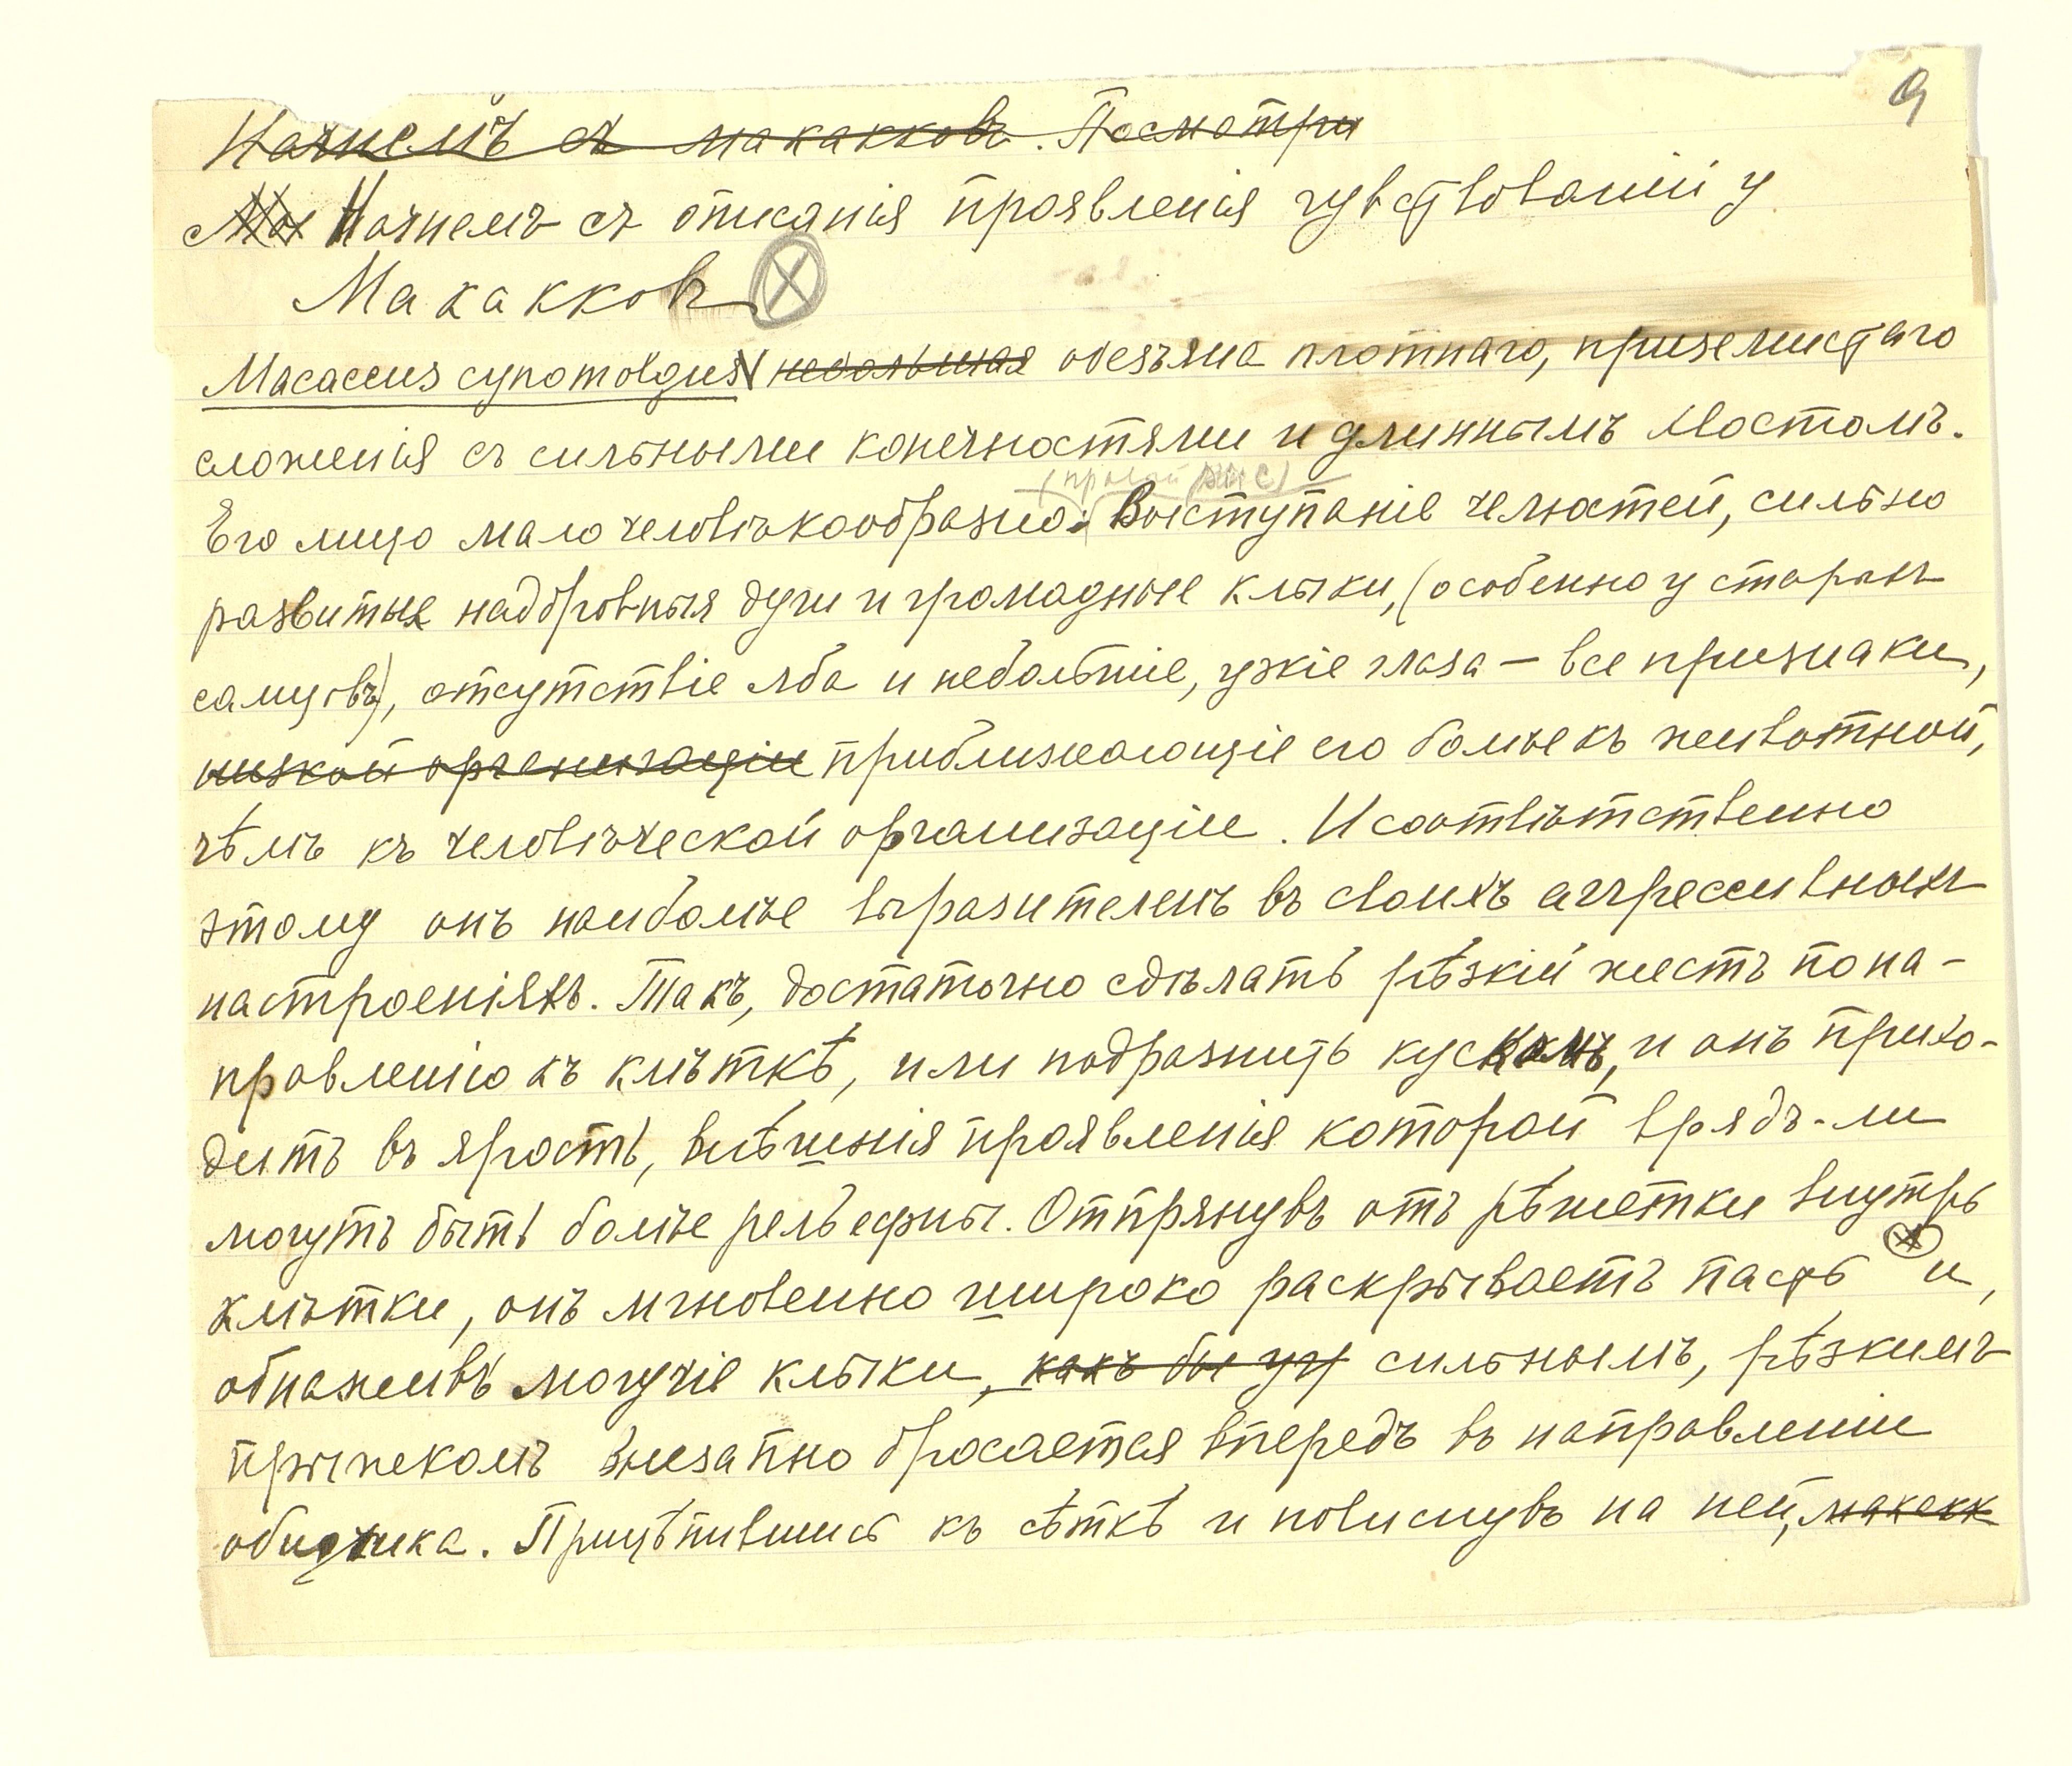 9
Начнемъ съ макакковъ. Посмотри
Мы Начнемъ съ описанія проявленія чувствованій у
Макакковъ
Macaccus cynomolgus небольшая обезъяна плотнаго, приземистаго
сложенія съ сильными конечностями и длиннымъ хвостомъ.
Его лицо мало человѣкообразно. Выступаніе челюстей, сильно
развитыя надбровныя дуги и громадные клыки, (особенно у старыхъ
самцовъ), отсутствіе лба и небольшіе, узкіе глаза — все признаки,
низкой организаціи приближающіе его болѣе къ животной,
чѣмъ къ человѣческой организаціи. И соотвѣтственно
этому онъ наиболѣе выразителенъ въ своихъ аггрессивныхъ
настроеніяхъ. Такъ, достаточно сдѣлать рѣзкій жестъ по на-
правленію къ клѣткѣ, или подразнить кускомъ, и онъ прихо-
дитъ въ ярость, внѣшнія проявленія которой врядъ-ли
могутъ быть болѣе рельефны. Отпрянувъ отъ рѣшетки внутрь
клѣтки, онъ мгновенно широко раскрываетъ пасть и,
обнаживъ могучіе клыки, какъ бы уг сильнымъ, рѣзкимъ
прыжкомъ внезапно бросается впередъ въ направленіи
обидчика. Прицѣпившись къ сѣткѣ и повиснувъ на ней, макакк